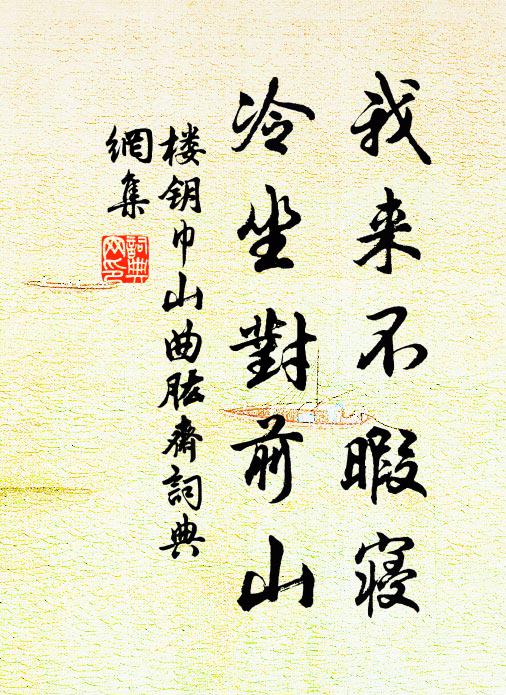 我来不暇寝
冷坐對前山
楼钥巾山曲肱斋詞典
網集
詞典
网印